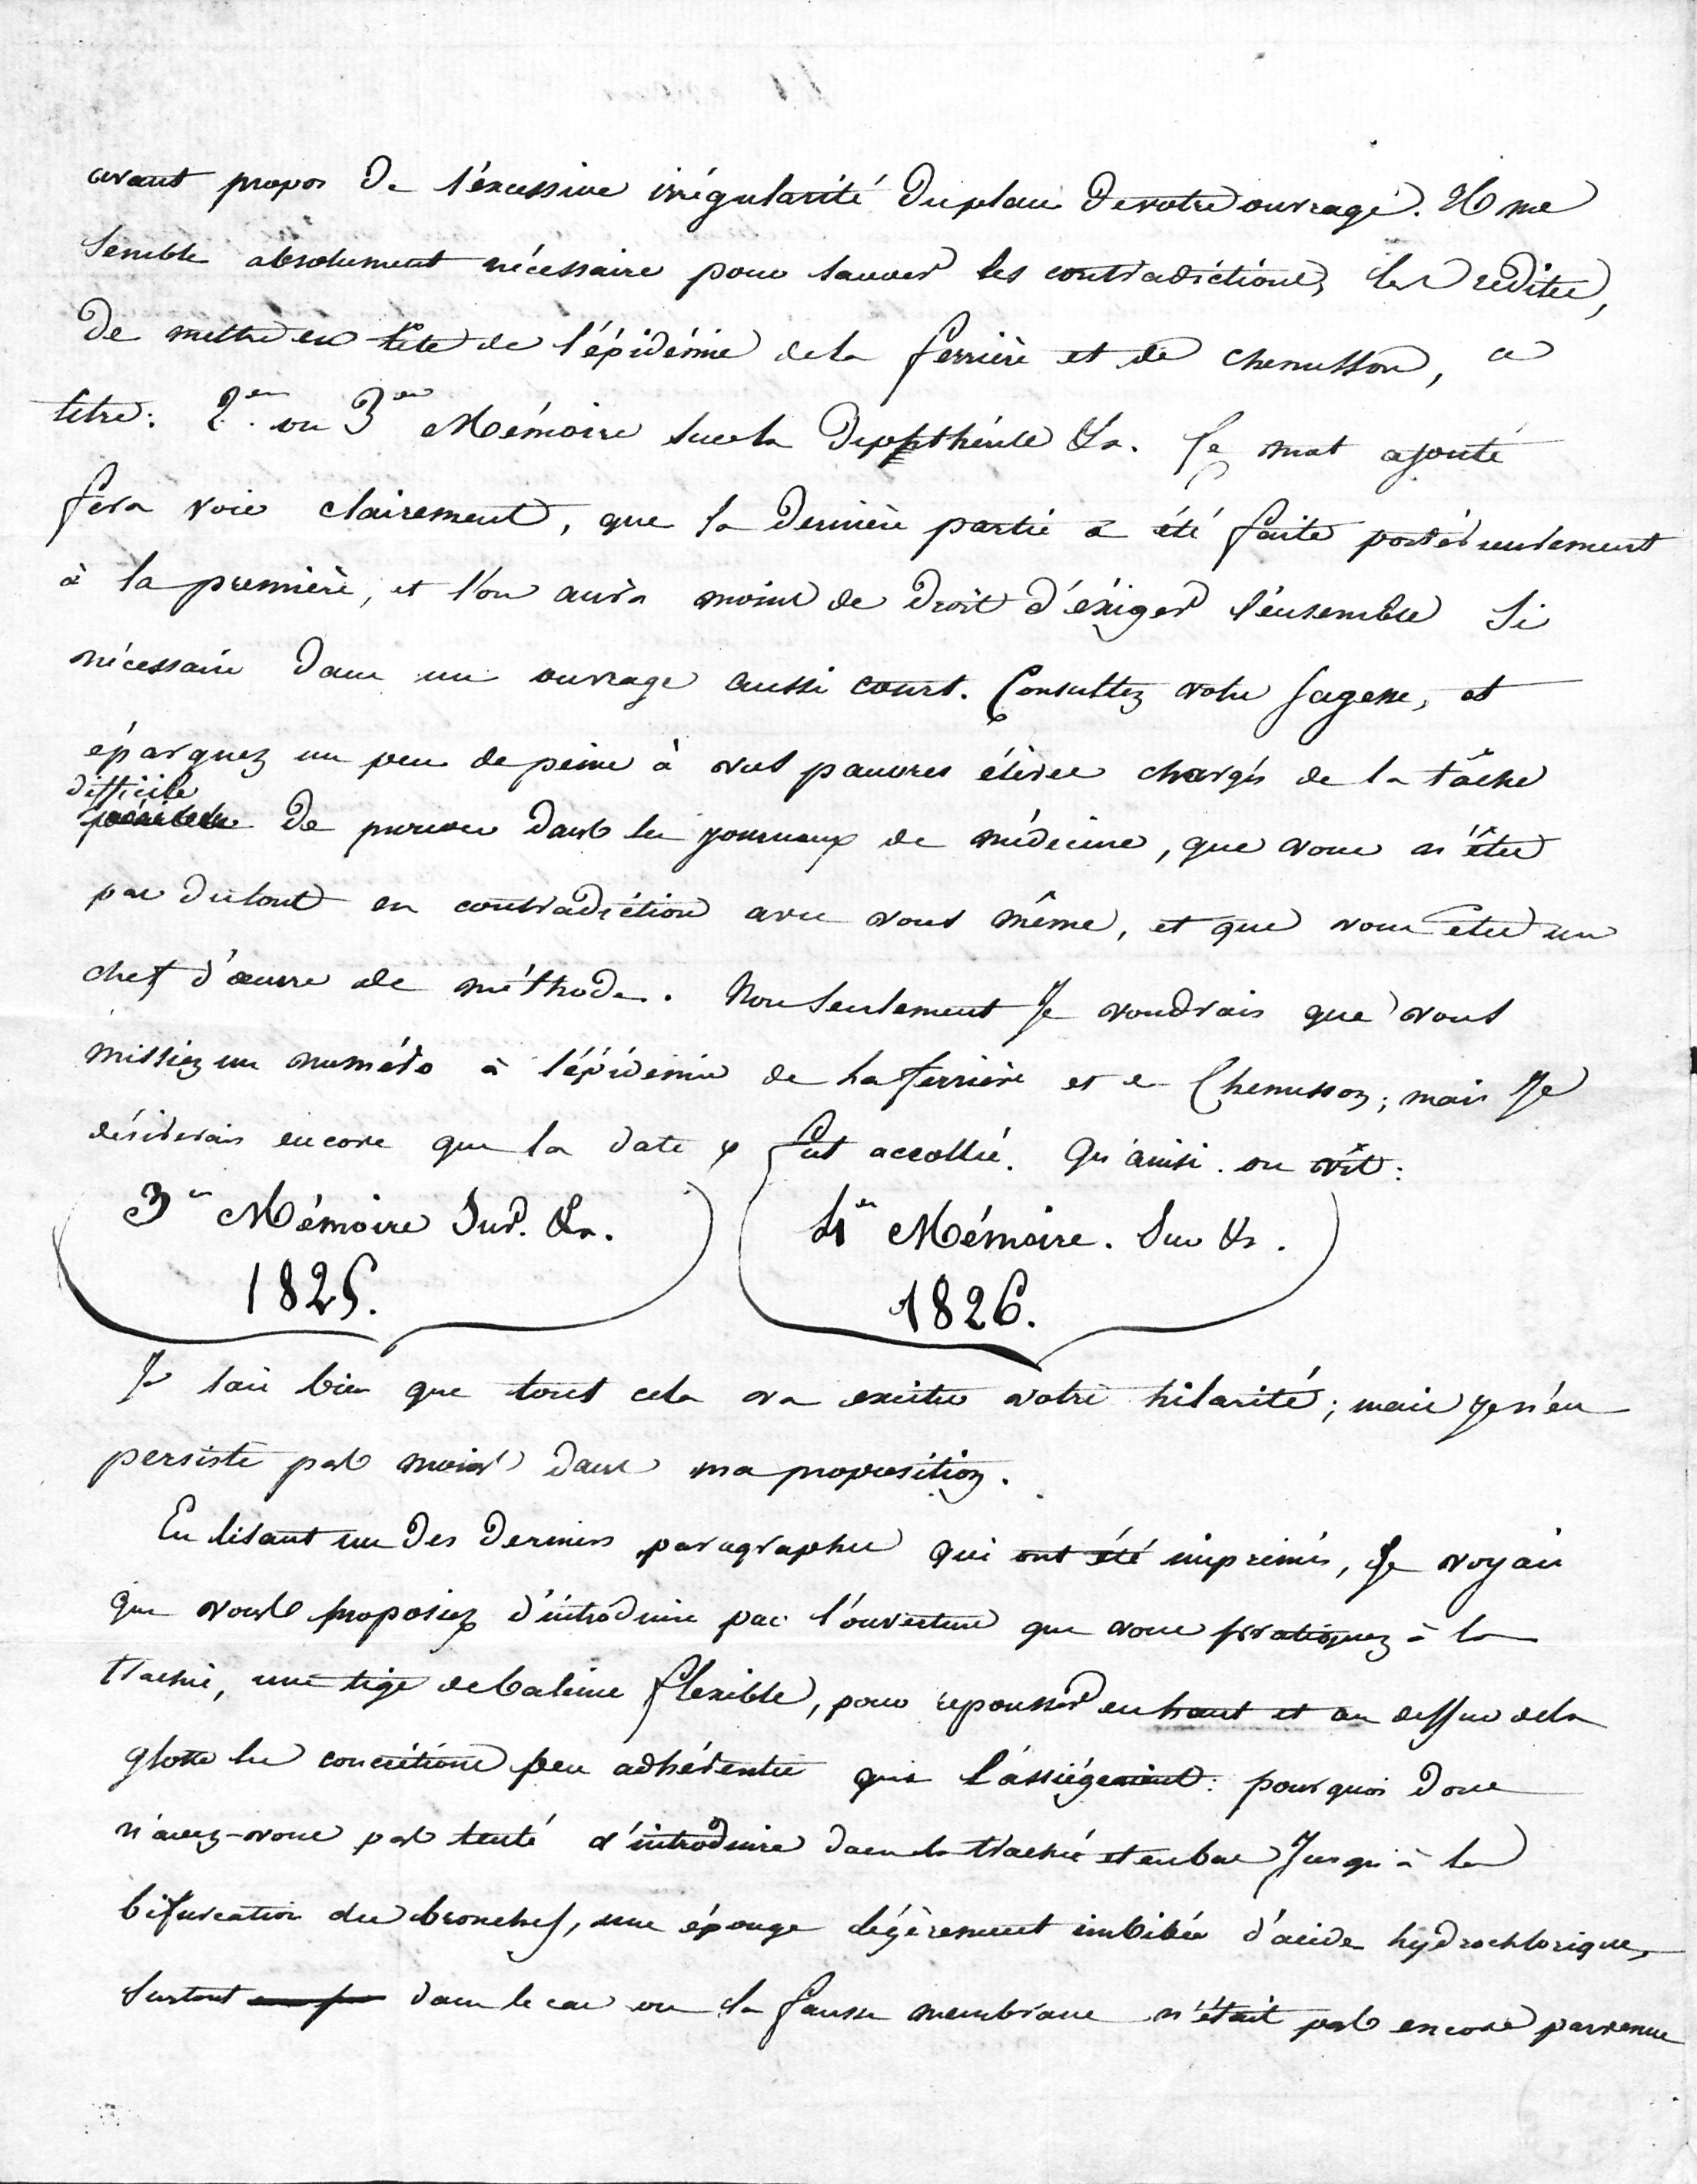 avant propos de l'excessive irrégularité du plan de votre ouvrage. Il me
semble absolument nécessaire pour sauver les contradictions, les redites,
de mettre en tête de l'épidémie de la ferrière et de chenusson, ce
titre: 2em ou 3em Mémoire sur la Diphthérite &a. Ce mot ajouté
fera voir clairement, que la dernière partie a été faite postérieurement
à la première, et l'on aura moins de droit d'éxiger l'ensemble si
nécessaire dans un ouvrage aussi court. Consultez votre sagesse, et
épargnez un peu de peine à vos pauvres élèves chargés de la tâche
difficile
pénible de prouver dans les journaux de médecine, que vous n'êtes
pas du tout en contradiction avec vous même, et que vous êtes un
chef d'œuvre de méthode. Non seulement je voudrais que vous
missiez un numéro à l'épidémie de La ferrière et de Chenusson; mais je
désirerais encore que la date y fut accollée. Qu'ainsi on vît:
3em Mémoire sur. &a. 4em Mémoire. Sur &a.
1825. 1826.
Je sais bien que tout cela va exciter votre hilarité; mais je n'en
persiste pas moins dans ma proposition.
En lisant un des derniers paragraphes qui ont été imprimés, je voyais
que vous proposiez d'introduire par l'ouverture que vous pratiquez à la
trachée, une tige de baleine flexible, pour repousser en haut et au dessus de la
glotte les concrétions peu adhérentes qui l'assiégeaient: pourquoi donc
n'avez-vous pas tenté d'introduire dans la trachée et en bas jusqu'à la
bifurcation des bronches, une éponge légèrement imbibée d'acide hydrochlorique,
surtout dans le cas ou la fausse membrane n'était pas encore parvenue